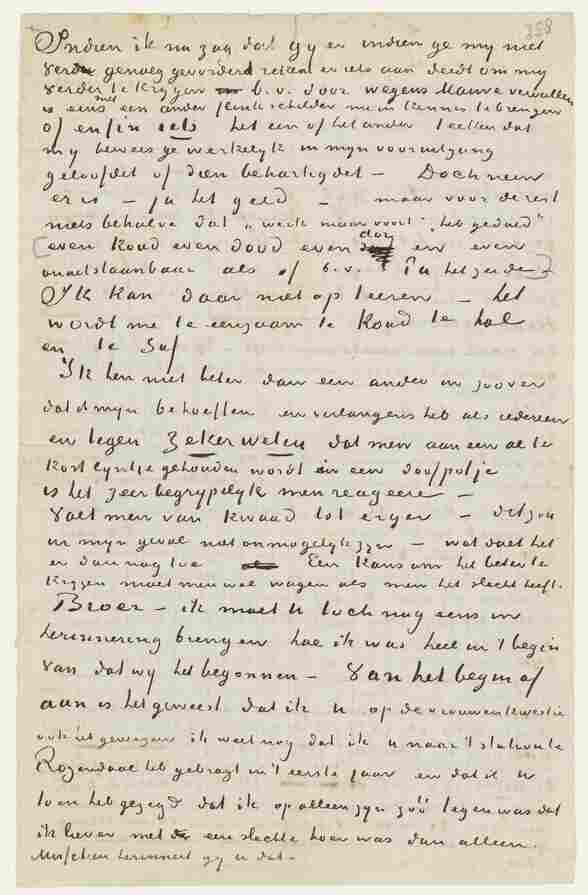 358
Indien ik nu zag dat gy er indien ge my niet
ver genoeg gevorderd rekent er iets aan deedt om my
verder te krygen b.v. door wegens Mauve vervallen
is eens met een ander flink schilder me in kennis te brengen
of enfin iets het een of het ander teeken dat
my bewees ge werkelyk in myn vooruitgang
geloofdet of dien behartigdet – Doch neen
er is – ja het geld – maar voor de rest
niets behalve dat „werk maar voort” „heb geduld”
(even koud even dood even dor en even
onuitstaanbaar als of b.v. Pa het zeide).
Ik kan daar niet op teeren – het
wordt me te eenzaam te koud te hol
en te suf
Ik ben niet beter dan een ander in zoover
dat ik myn behoeften en verlangens heb als iedereen
en tegen zeker weten dat men aan een al te
kort lyntje gehouden wordt in een doofpotje
is het zeer begrypelyk men reageere –
Valt men van kwaad tot erger – dit zou
in myn geval niet onmogelyk zyn – wat doet het
er dan nog toe Een kans om het beter te
krygen moet men wel wagen als men het slecht heeft.
Broer – ik moet U toch nog eens in
herinnering brengen hoe ik was heel in 't begin
van dat wy het begonnen – Van het begin af
aan is het geweest dat ik U op de vrouwenkwestie
ook heb gewezen ik weet nog dat ik U naar 't station te
Rozendaal heb gebragt in 't eerste jaar en dat ik U
toen heb gezegd dat ik op alleen zyn zóó tegen was dat
ik liever met een slechte hoer was dan alleen.
Misschien herinnert gy U dat –